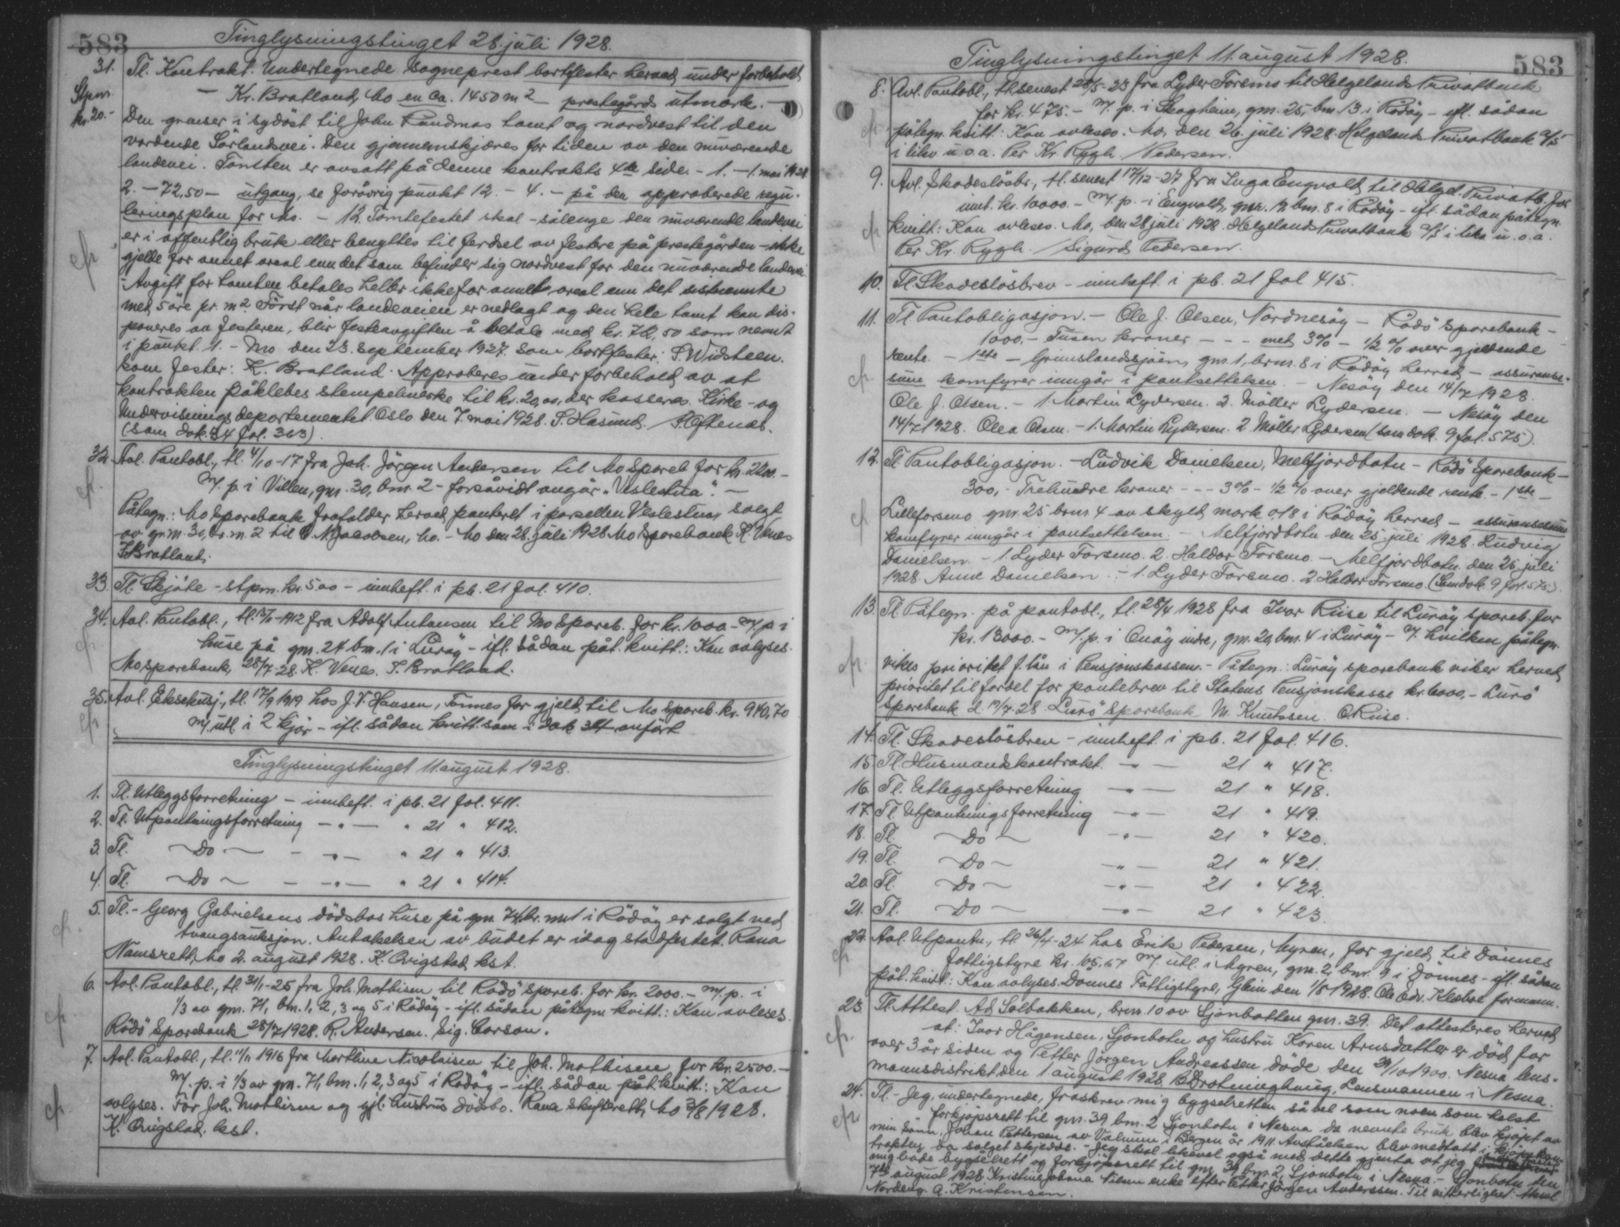 583
Tinglysningstinget 28. juli 1928.
31. Tl. Kontrakt: Undertegnede sogneprest bortfester herved under forbehold
Stpm. kr. 20.-
- Kr. Bratland, Mo en ca. 1450 m2 - prestegårds utmark. -
Den grenser i sydøst til John Randmos tomt og nordvest til den
vordende Sørlandsvei. Den gjennemskjæres for tiden av den nuværende
landevei. Tomten er avsatt på denne kontrakts 4de side - 1. - 1. mai 1928
2. - 72,50 - utgang, se forøvrig punkt 12. - 4. - på den approberede regu-
leringsplan for Mo. - 12. Tomtefestet skal - sålenge den nuværende landevei
er i offentlig bruk eller benyttes til ferdsel av festere på prestegården - ikke
gjelde for annet areal enn det som befinder sig nordvest for den nuværende landevei
Avgift for tomten betales heller ikke for annet areal enn det sistnevnte
med 5 øre pr. m2. Først når landeveien er nedlagt og den hele tomt kan dis-
poneres av festeren, blir festeavgiften å betale med kr. 72,50 som nevnt
i punkt 1. - Mo den 23. september 1927. Som bortfester: S. Widsteen.
Som fester: K. Bratland. Approberes under forbehold av at
kontrakten påklebes stempelmerke til kr. 20,00, der kasseres. Kirke- og
Undervisningsdepartementet Oslo den 7. mai 1928. S. Hasund.
(Sam dok. 34 fol. 363).
32. Avl. Pantobl., tl. 4/10-17 fra Joh. Jörgen Andersen til Mo Spareb. for kr. 2200.-
m/ p. i Villen, gnr. 30, bnr. 2 - forsåvidt angår "Veslestua". -
Påtegn.: Mo Sparebank frafalder herved panteret i parsellen Veslestua solgt
av gnr. 30, br. nr. 2 til Jacobsen, Mo. - Mo den 28. juli 1928 Mo Sparebank K. Venes
S. Bratland.
33. Tl. Skjöte - stpm. kr. 5.00 - innheft. i pb. 21 fol. 410.
34. Avl. Pantobl., tl. 1912 fra Adolf Antonsen til Mo Spareb. for kr. 1000.- m/ p. i
huse på gnr. 24 bnr. 1 i Lurøy - ifl. sådan påt. kvitt: Kan avlyses.
Mo sparebank, 28/7 28. K. Venes. S. Bratland.
35. Avl. Eksekusj., tl. 17/9 1919 hos J. V. Hansen, Formes for gjeld til Mo Spareb. kr. 940,70
m/ utl. i 2 kjör - ifl. sådan kvitt. som i dok 34 anfört
Tinglysningstinget 11. august 1928.
1. Tl. Utleggsforretning - innheft. i pb. 21 fol. 411.
2. Tl. Utpantningsforretning - " - " 21 " 412.
3. Tl. - Do - - " - " 21 " 413.
4. Tl. - Do - - " - " 21 " 414.
5. Tl. - Georg Gabrielsens dödsbos huse på gnr. 74 br. nr. 1 i Rödöy er solgt ved
tvangsauksjon. Antakelsen av budet er idag stadfestet. Rana
Namsrett, Mo 2. august 1928. K. Qvigstad. kst.
6. Avl. Pantobl., tl. 31/1-25 fra Joh. Mathisen til Rödö spareb. for kr. 2000.- m/ p. i
1/3 av gnr. 71, bnr. 1, 2, 3 og 5 i Rödöy - ifl. sådan påtegn. kvitt: Kan avleses.
Rödö Sparebank 28/7 1928. R. Andersen. Sig. Carson.
7. Avl. Pantobl., tl. 1916 fra Marthine Nicolaisen til Joh. Mathisen for kr. 2500.-
m/ p. i 1/3 av gnr. 71, bnr. 1, 2, 3 og 5 i Rödöy - ifl. sådan påt. kvitt: Kan
avlyses. For Joh. Mathisen og gjl. hustrus dödsbo. Rana skifterett, Mo 3/8 1928.
K. Qvigstad. kst.
Tinglysningstinget 11. august 1928.
583
8. Avl. Pantobl., tl. senest 23 fra Lyder Forsmo til Helgelands Privatbank
for kr. 475.- m/ p. i Skogheim, gnr. 25, bnr. 13 i Rödöy - ifl. sådan
påtegn. kvitt: Kan avleses. Mo, den 26. juli 1928. Helgelands Privatbank A/S
i likv. u. o. a. Per Kr. Rygh. Pedersen.
9. Avl. Skadeslösbr., tl. senest 17/12-27 fra Inga Engvold til Helgel. Privatb. for
innt. kr. 10000.- m/ p. i Engvold, gnr. bnr. 8 i Rödöy - ifl. sådan påtegn.
kvitt: Kan avleses. Mo, den 28 juli 1928. Helgelands Privatbank A/S i likv. u. o. a.
Per Kr. Rygh. Sigurd Pedersen.
10. Tl. Skadeslösbrev - innheft. i pb. 21 fol 415.
11. Tl. Pantobligasjon. - Ole J. Olsen, Nordnesöy - Rödö Sparebank -
1000.- Tusen kroner - - - med 3% - 1/2 % over gjeldende
rente. - 1ste - Grunnlandssjöen, gnr. 1, brnr. 8 i Rödöy herred - assuranse-
sum komfyrer inngår i pantsettelsen. - Nesöy den 14/7 1928.
Ole J. Olsen. - 1. Martin Lydersen. 2. Möller Lydersen. - Nesöy den
14/7 1928. Olea Olsen. - 1. Martin Lydersen. 2 Möller Lydersen (sam dok. 9 fol. 575).
12. Tl. Pantobligasjon. - Ludvik Danielsen, Melfjordbotn - Rödö Sparebank -
300,- Trehundre kroner - - - 3% - 1/2 % over gjeldende rente. - 1ste -
Lilleforsmo gnr. 25 brnr. 4 av skyld mark 0,18 i Rödöy herred - assuransesum
komfyrer inngår i pantsettelsen. - Melfjordbotn den 25 juli 1928. Ludvig
Danielsen. - 1. Lyder Forsmo. 2. Haldor Forsmo. - Melfjordbotn den 25 juli
1928. Anne Danielsen. - 1. Lyder Forsmo. 2 Haldor Forsmo. (Sam dok. 9 fol. 575).
13. Tl. Påtegn. på pantobl., tl. 28/4 1928 fra Ivar Riise til Luröy spareb. for
kr. 13000.- m/ p. i Onöy indre, gnr. 20, bnr. 4 i Luröy - hvilken påtegn.
vikes prioritet f. lån i Pensjonskassen. - Påtegn: Luröy sparebank viker herved
prioritet til fordel for pantebrev til Statens Pensjonskasse kr. 6000.- Lurö
Sparebank d. 28. Lurö Sparebank M. Knutssen. O. Riise.
14. Tl. Skadeslösbrev - innheft. i pb. 21 fol. 416.
15. Tl. Husmandskontrakt - " - 21 " 417.
16. Tl. Utleggsforretning - " - 21 " 418.
17. Tl. Utpantningsforretning - " - 21 " 419.
18. Tl. - Do - - " - 21 " 420.
19. Tl. - Do - - " - 21 " 421.
20. Tl. - Do - - " - 21 " 422.
21. Tl. - Do - - " - 21 " 423.
22. Avl. Utpantn., tl. 26/4-24 hos Erik Pedersen, Myren, for gjeld til Dönnes
fattigstyre kr. 65,67 m/ utl. i Myren, gnr. 2, bnr. 9 i Dönnes - ifl. sådan
påt. kvitt: Kan avlyses. Dönnes Fattigstyre, Glein den 1/8 1928. formann.
23. Tl. Attest. Ad Solbakken, brnr. 10 av Sjönbotten gnr. 39. Det attesteres herved
at: Ivar Hågensen, Sjonbotn og hustru Karen Arnsdatter er död for
over 3 år siden og Petter Jörgen Andreassen döde den 30/10 1900. Nesna lens-
mannsdistrikt den 1 august 1928. Lensmannen i Nesna.
24. Tl. - Jeg, undertegnede, fraskrev mig bygselretten såvel som noen som helst
forkjøpsrett til gnr. 39 bnr. 2 Sjonbotn i Nesna da nevnte bruk blev kjøpt av
min sønn, Johan Pettersen av i Bergen år 1911. Avståelsen blev medtatt i kjøpekon-
trakten, da salget skjedde. - Jeg skal likevel også med dette gjenta at jeg
mig både bygselrett og forkjøpsrett til gnr. 39 bnr. 2 Sjonbotn i Nesna. - Sjonbotn den
7de august 1928. Kristine Johana enke efter Petter Jörgen Andreassen. Til vitterlighet:
Nordeng. A. Kristensen.